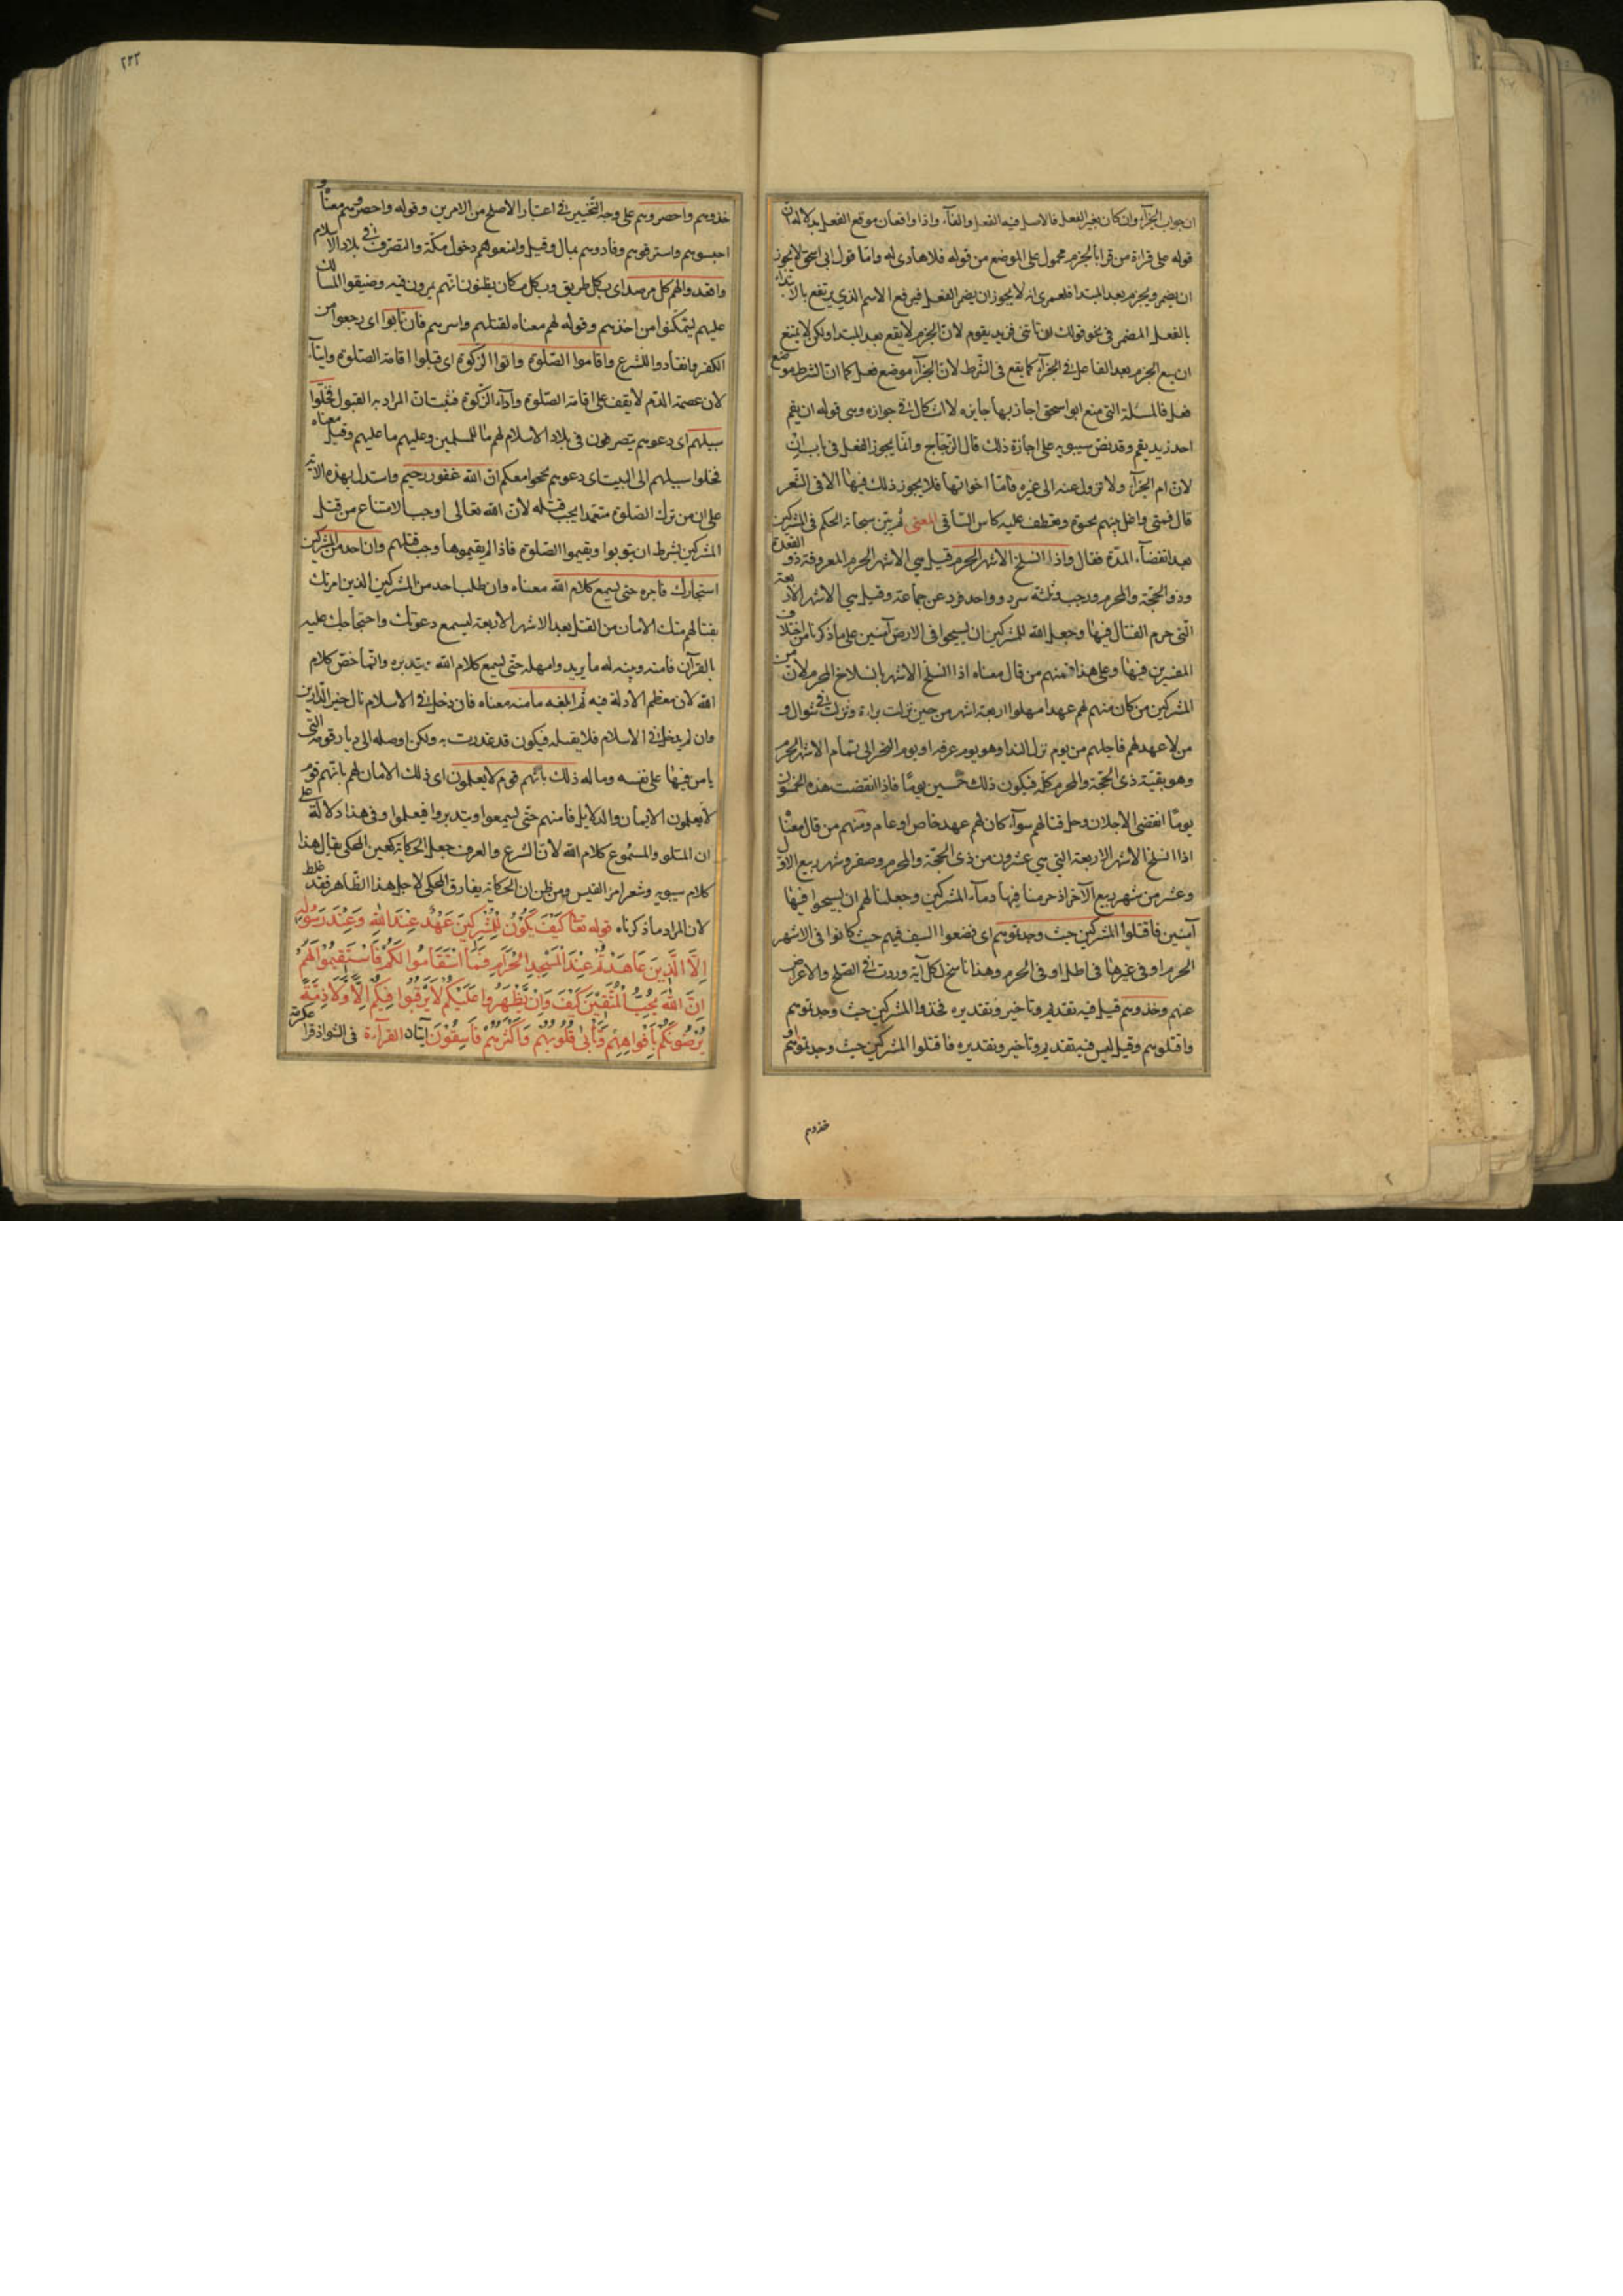 ان جواب الجزآء وان كان بغير الفعل فالاصل فيه الفعل والفآء واذا واقعان موقع الفعل بدلالة ان
قوله على قراءة من قرا بالجزم محمول على الموضع من قوله فلا هادى له واما قول ابى اسحق لا يجوز
ان يضمر ويجزم بعد المبتدا فلعمرى انه لا يجوز ان يضمر الفعل فيرفع الاسم الذي يرتفع بالابتداء
بالفعل المضمر فى نحو قولك ان تاتنى فزيد يقوم لان الجزم لا يقع بعد المبتدا ولكن لا يمتنع
ان يقع الجزم بعد الفاعل في الجزآء كما يقع فى الشرط لان الجزآء موضع فعل كما ان الشرط موضع
فعل فالمسئلة التى منع ابو اسحق اجازتها جايزه لا اشكال في جوازه وهى قوله ان يقم
احد زيد يقم وقد نص سيبويه على اجازة ذلك قال الزجاج وانما يجوز الفعل فى باب ان
لان ام الجزآء ولا تزول عنه الى غيره فاما اخواتها فلا يجوز ذلك فيها الا فى الشعر
قال فمتى واغل ينبهم يحيوه وتعطف عليه كاس الساقى المعنى ثم بين سبحانه الحكم فى المشركين
بعد انقضآء المدة فقال واذا انسلخ الاشهر الحرم قيل هي الاشهر الحرم المعروفة ذو القعدة
وذو الحجة والمحرم ورجب وثلثة سرد وواحد فرد عن جماعة وقيل هي الاشهر الاربعة
التى حرم القتال فيها وجعل الله للمشركين ان يسيحوا فى الارض آمنين على ما ذكرنا من اختلاف
المفسرين فيها وعلى هذا فمنهم من قال معناه اذا انسلخ الاشهر بانسلاخ المحرم لان من
المشركين من كان منهم لهم عهد امهلوا اربعة اشهر من حين نزلت براءة ونزلت في شوال و
من لا عهد لهم فاجلهم من يوم نزل النداء وهو يوم عرفه او يوم النحر الى تمام الاشهر الحرم
وهو بقية ذى الحجة والمحرم كله فيكون ذلك خمسين يومًا فاذا انقضت هذه الخمسون
يومًا انقضى الاجلان وحل قتالهم سوآء كان لهم عهد خاص او عام ومنهم من قال معناه
اذا انسلخ الاشهر الاربعة التي هي عشرون من ذى الحجة والمحرم وصفر وشهر ربيع الاول
وعشر من شهر ربيع الآخر اذ حرمنا فيها دمآء المشركين وجعلنا لهم ان يسيحوا فيها
آمنين فاقتلوا المشركين حيث وجدتموهم اى فضعوا السيف فيهم حيث كانوا فى الاشهر
الحرم او فى غيرها فى الحل او فى الحرم وهذا ناسخ لكل آية وردت في الصلح والاعراض
عنهم وخذوهم قيل فيه تقديم وتاخير وتقديره فخذوا المشركين حيث وجدتموهم
واقتلوهم وقيل ليس فيه تقديم وتاخير وتقديره فاقتلوا المشركين حيث وجدتموهم او
خذوهم
٢٢٣
خذوهم واحصروهم على وجه التخيير في اعتبار الاصلح من الامرين وقوله واحصروهم معناه و
احبسوهم واسترقوهم وفادوهم بمال وقيل وامنعوهم دخول مكة والتصرف في بلاد الاسلام
واقعدوا لهم كل مرصد اى بكل طريق وبكل مكان يظنون انهم يمرون فيه وضيقوا المسالك
عليهم ليتمكنوا من اخذهم وقوله لهم معناه لقتلهم واسرهم فان تابوا اى رجعوا من
الكفر وانقادوا للشرع واقاموا الصلوة واتوا الزكوة اى قبلوا اقامة الصلوة وايتآء
لان عصمة الدم لا يقف على اقامة الصلوة وادآء الزكوة فثبت ان المراد به القبول فخلوا
سبيلهم اى دعوهم يتصرفون فى بلاد الاسلام لهم ما للمسلمين وعليهم ما عليهم وقيل معناه
فخلوا سبيلهم الى البيت اى دعوهم يحجوا معكم ان الله غفور رحيم واستدل بهذه الاية
على ان من ترك الصلوة متعمدا يجب قتله لان الله تعالى اوجب الامتناع من قتل
المشركين بشرط ان يتوبوا ويقيموا الصلوة فاذا لم يقيموها وجب قتلهم وان احد من المشركين
استجارك فاجره حتى يسمع كلام الله معناه وان طلب احد من المشركين الذين امرتك
بقتالهم منك الامان من القتل بعد الاشهر الاربعة ليسمع دعوتك واحتجاجك عليه
بالقرآن فامنه وبينه له ما يريد وامهله حتى يسمع كلام الله ويتدبره وانما خص كلام
الله لان معظم الادلة فيه ثم ابلغه مامنه معناه فان دخل في الاسلام نال خير الدارين
وان لم يدخل في الاسلام فلا يقتله فيكون قد غدرت به ولكن اوصله الى ديار قومه التى
يامن فيها على نفسه وماله ذلك بانهم قوم لا يعلمون اى ذلك الامان لهم بانهم قوم
لا يعلمون الايمان والدلايل فامنهم حتى يسمعوا ويتدبروا فيعلموا وفى هذا دلالة على
ان المتلو والمسموع كلام الله لان الشرع والعرف جعل الحكاية كعين المحكى يقال هذا
كلام سيبويه وشعر امرء القيس ومن ظن ان الحكاية يفارق المحكى لاجل هذا الظاهر فقد غلط
لان المراد ما ذكرناه قوله تعا كَيْفَ يَكُوْنُ لِلْمُشْرِكِينَ عَهْدٌ عِنْدَ اللهِ وَعِنْدَ رَسُوْلِهِ
اِلَّا الَّذِينَ عَاهَدْتُمْ عِنْدَ الْمَسْجِدِ الْحَرَامِ فَمَا اسْتَقَامُوا لَكُمْ فَاسْتَقِيْمُوْا لَهُمْ
اِنَّ اللهَ يُحِبُّ الْمُتَّقِيْنَ كَيْفَ وَاِنْ يَظْهَرُوا عَلَيْكُمْ لَا يَرْقُبُوا فِيكُمْ اِلًّا وَّلَا ذِمَّةً
يُرْضُونَكُمْ بِاَفْوَاهِهِمْ وَتَأْبَى قُلُوبُهُمْ وَاَكْثَرُهُمْ فَاسِقُوْنَ آيتان القرآءة فى الشواذ قرا عكرمة